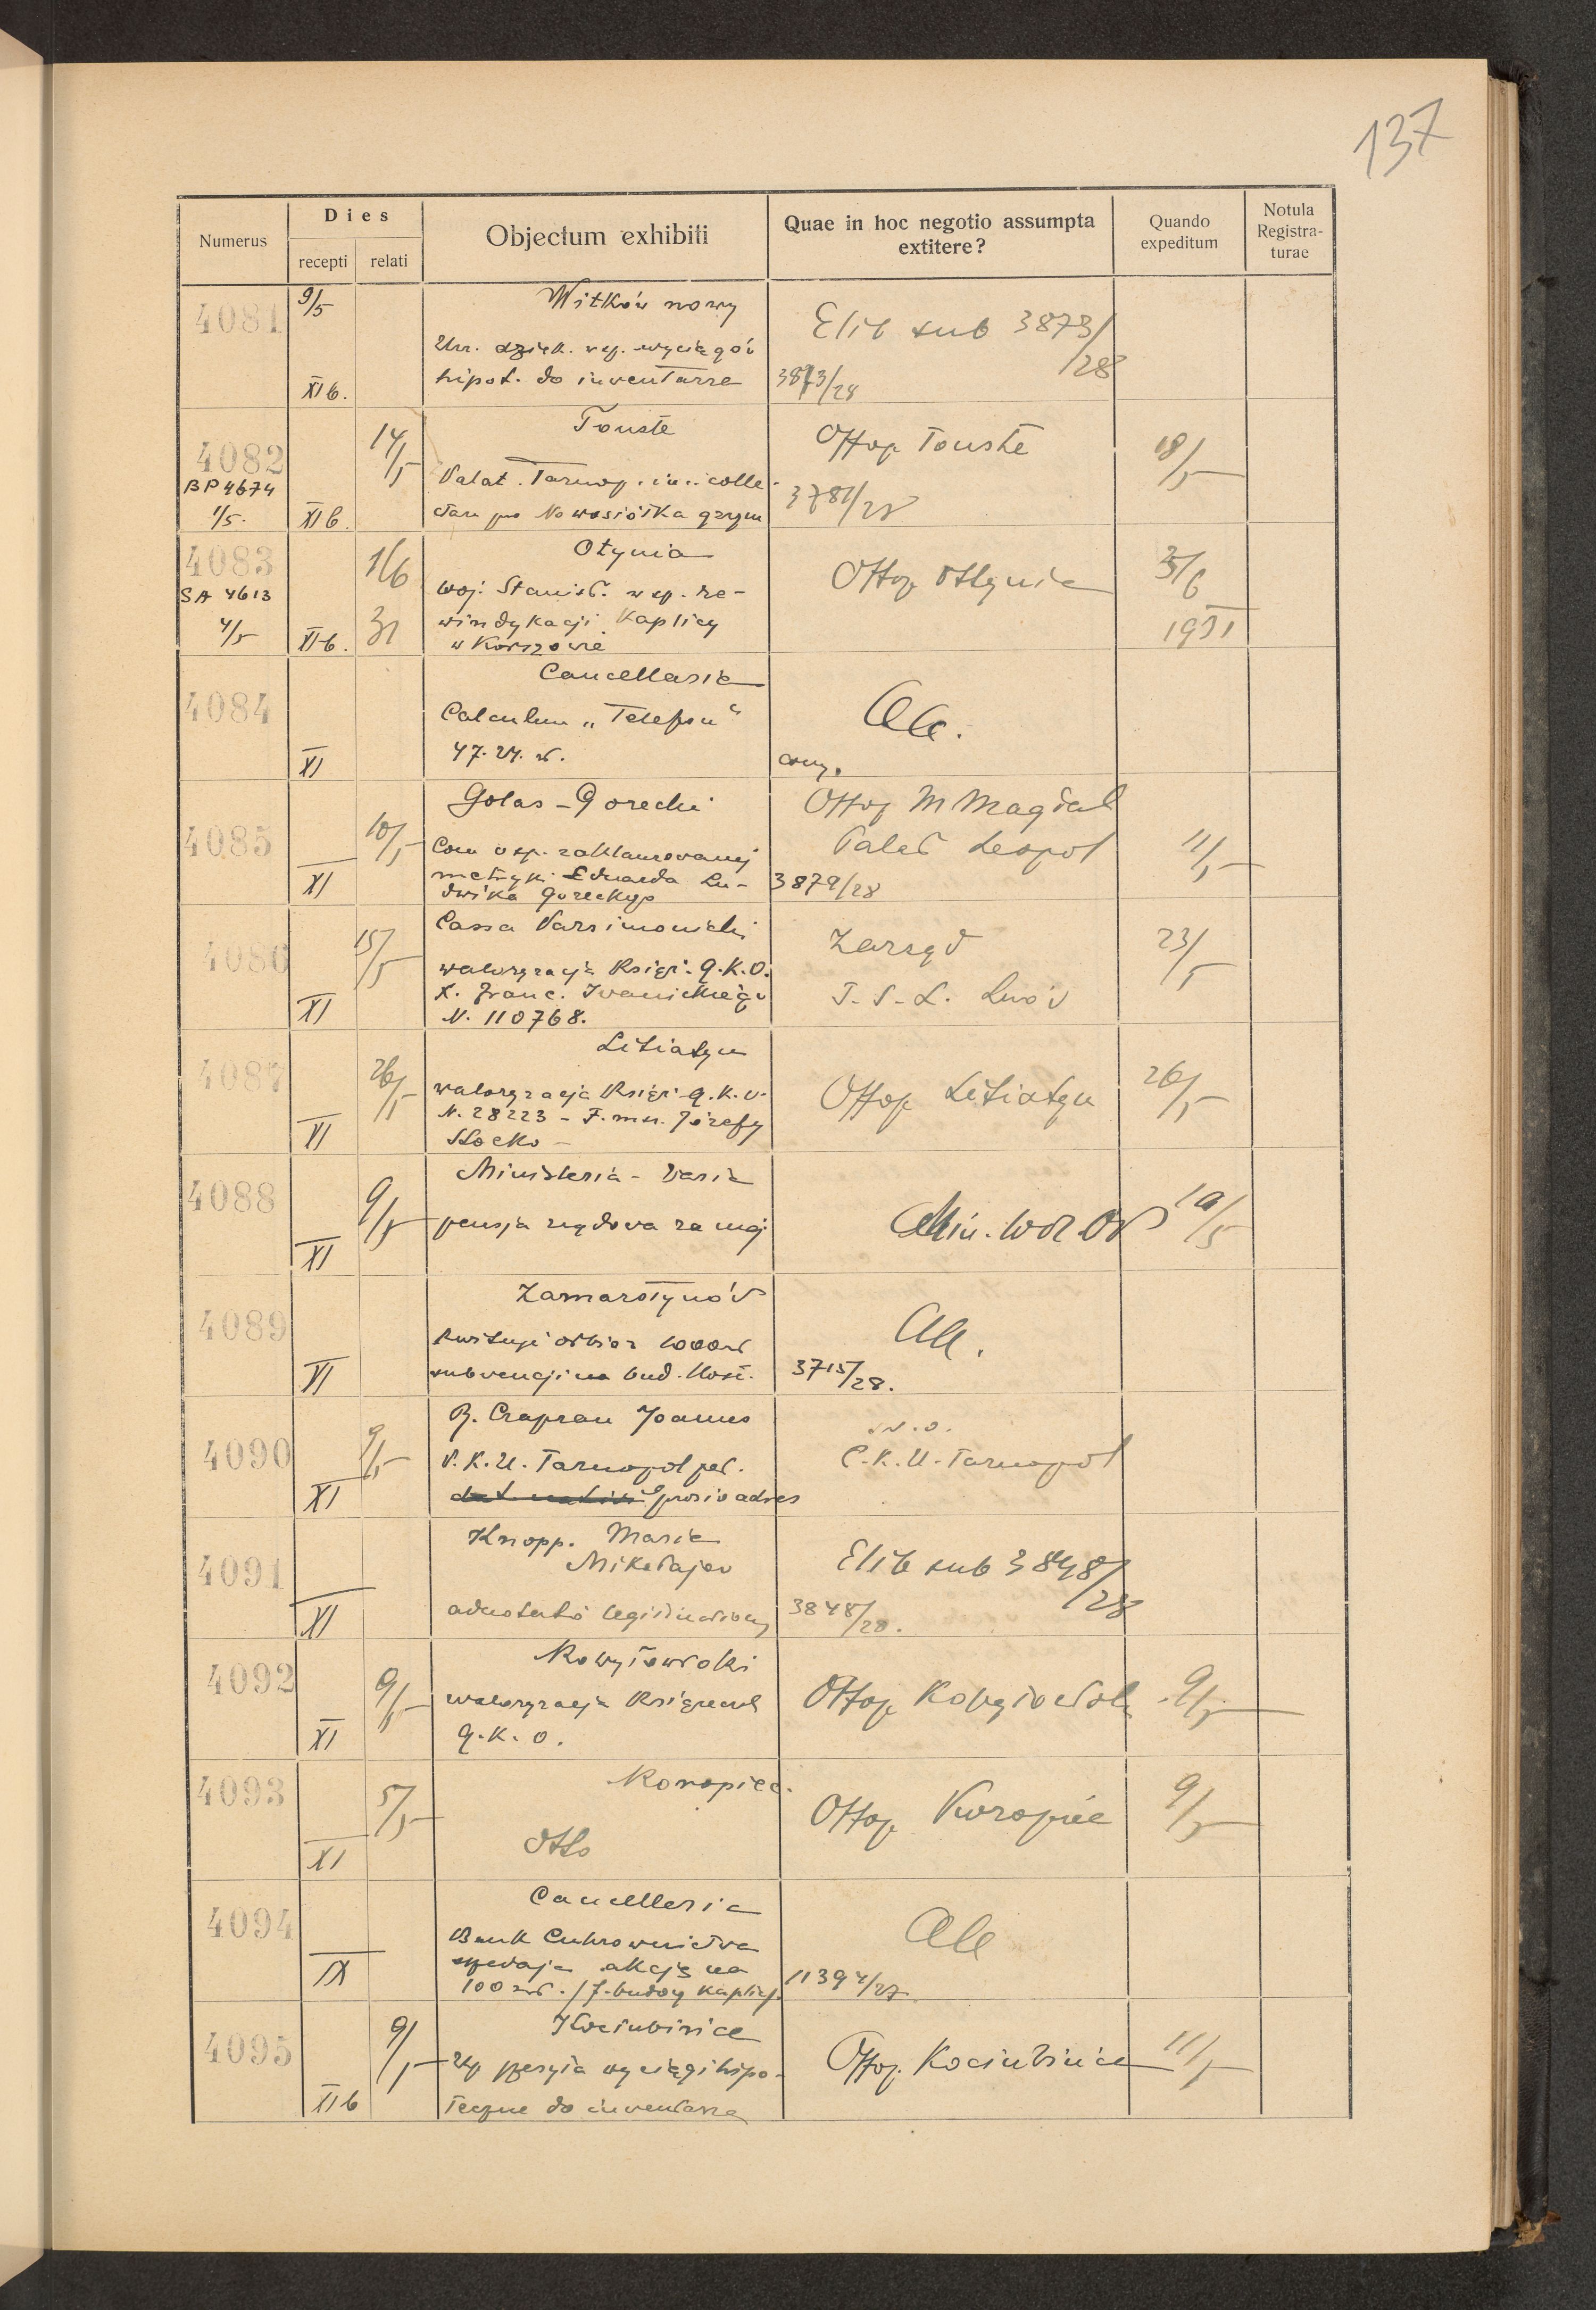 137
Numerus
Dies
recepti
relati
Objectum exhibiti
Quae in hoc negotio assumpta
extitere?
Quando
expeditum
Notula
Registra-
turae
4081
9/5
XI b.
Witków nowy
Urz. dziek. wyciągów
hipot. do inwentarza
Elib sub 3873/28
3873/28
4082
BP 4674
1/5.
XI b.
14/5
Touste
Palat. Tarnop.
Nowosiółka grzym
Offop Touste
3781/28
18/5
4083
SA 4613
4/5
XI b.
1/6
31
Otynia
woj. Stanisł. wsp. re-
windykacji Kaplicy
w Korszowie
Offop Otynia
3/6
1931
4084
XI
Cancellaria
Calculum „Telefon"
47.24. zł.
Aa.
4085
XI
10/5
Golas - Gorecki
metryki Eduarda Lu-
dwika Goreckego
Offop M Magdal
Palat Leopol
3879/28
11/5
4086
XI
15/5
Cassa
waloryzacja Księż. G.K.O.
X. Franc. Iwanickiego
N. 110768.
Zarząd
T.S.L. Lwów
23/5
4087
XI
26/5
Litiatyn
waloryzacja Księż. G.K.O.
N. 28223 - F. msz. Józefy
Offop Litiatyn
26/5
4088
XI
9/5
Ministeria - Varia
pensja rządowa za maj
Min. W R OP
10/5
4089
XI
Zamarstynów
kwituje odbiór 1000 zł
subwencji na bud. Kość.
Aa.
3715/28.
4090
XI
9/5
R. Czapran Joannes
P.K.U. Tarnopol
prosi o adres
P.K.U. Tarnopol
4091
XI
Knopp. Maria
Mikołajow
Elib sub 3848/28
3848/28.
4092
XI
9/5
waloryzacja Księżeczek
G.K.O.
Offop
9/5
4093
XI
5/5
Koropiec.
Otto
Offop Koropiec
9/5
4094
IX
Cancelleria
Bank Cukrownictwa
akcję na
100 zł. / f. budowy Kaplicy.
Aa
11394/27
4095
XI b
9/5
Kociubińce
wyciągi hipo-
teczne do inwentarza
Offop. Kociubińce
11/5